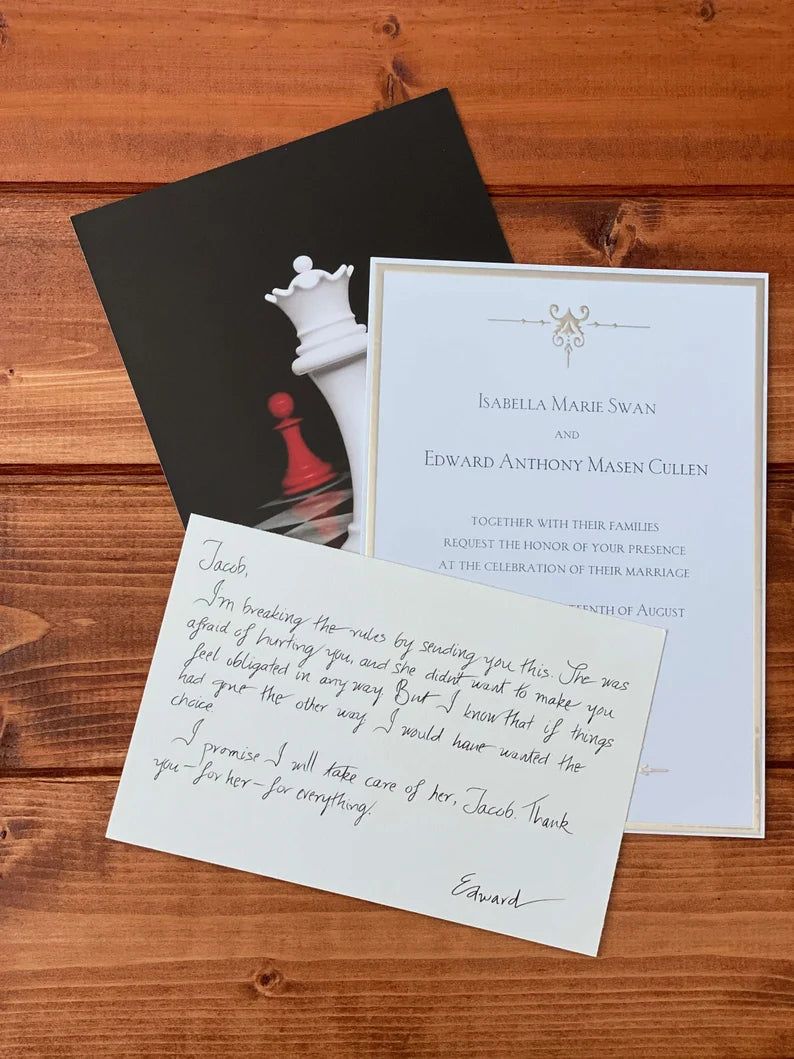 ISABELLA MARIE SWAN
AND
EDWARD ANTHONY MASEN CULLEN
TOGETHER WITH THEIR FAMILIES
REQUEST THE HONOR OF YOUR PRESENCE
AT THE CELEBRATION OF THEIR MARRIAGE
OF AUGUST
Jacob,
I'm breaking the rules by sending you this. She was
afraid of hurting you, and she didn't want to make you
feel obligated in any way. But I know that if things
had gone the other way I would have wanted the
choice.
I promise I will take care of her, Jacob. Thank
you—for her—for everything.
Edward